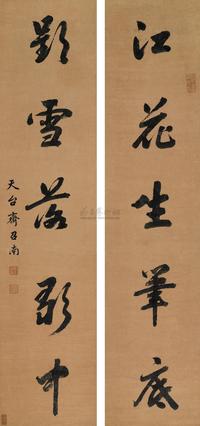 江花生筆底
郢雪落歌中
天台齊召南